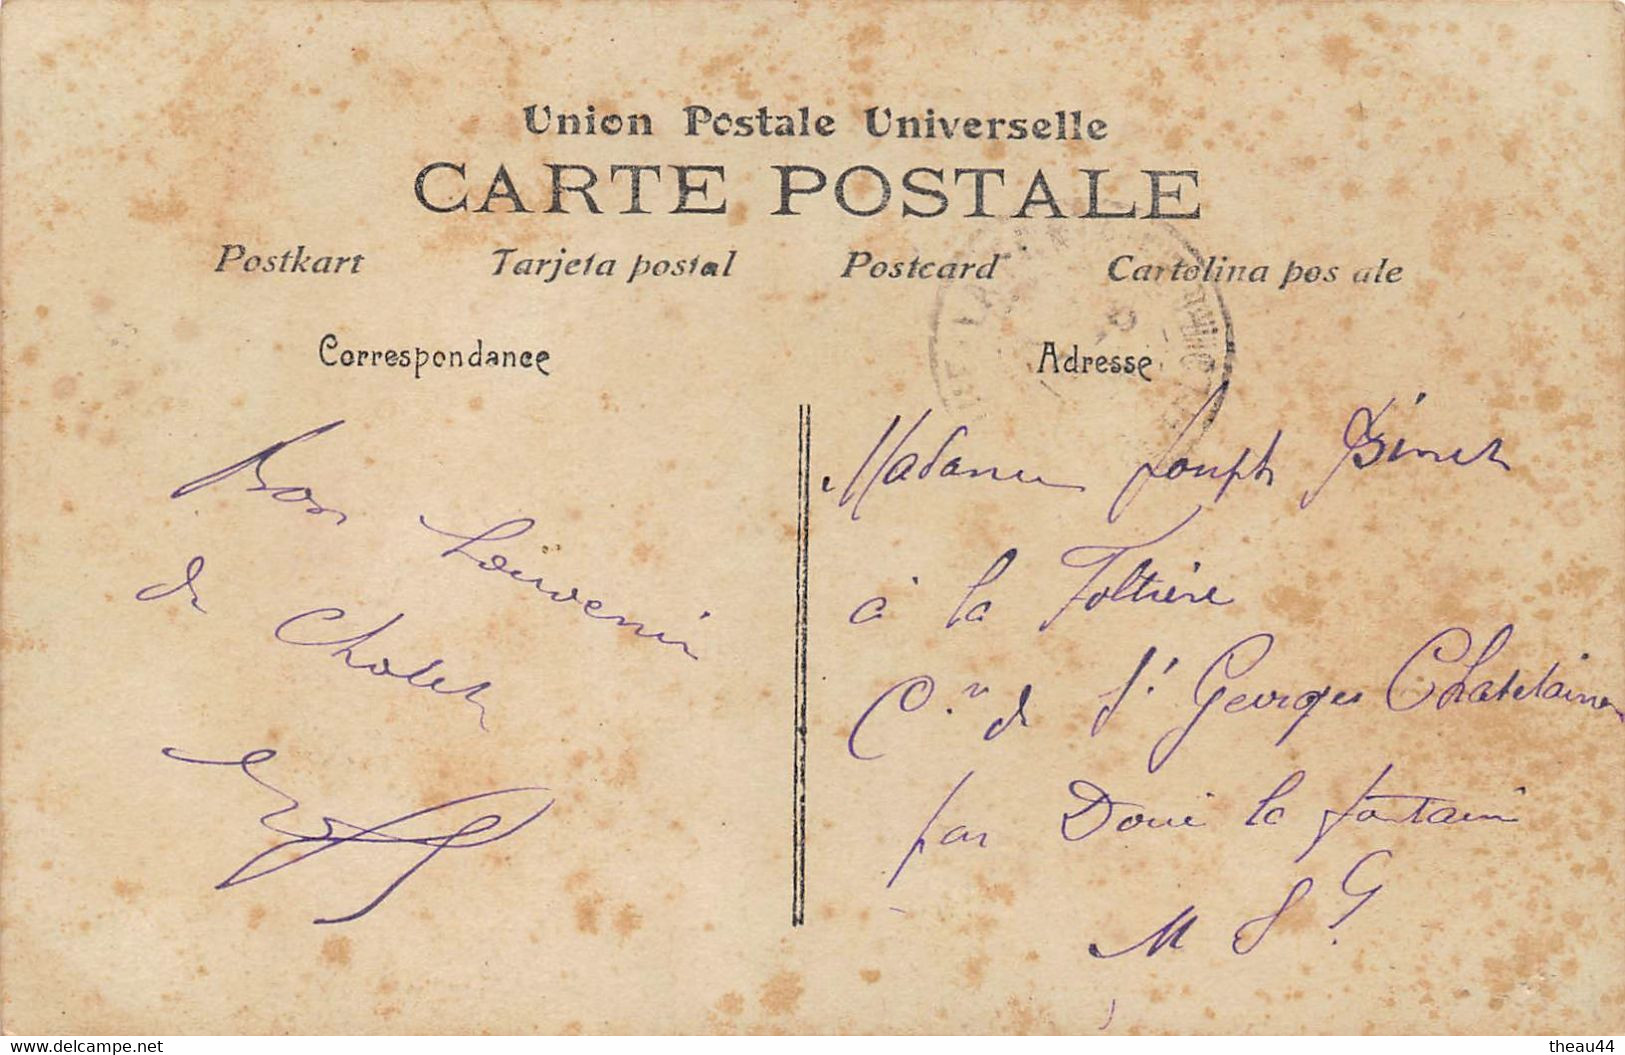 Union Postale Universelle
CARTE POSTALE
Postkart Tarjeta postal Postcard Cartolina pos ale
Correspondance
Bon Souvenir
de Cholet
Adresse
Madame Joseph Binet
à la Foltière
Cne de St Georges Chatelaison
par Doué la fontaine
M & L
www.delcampe.net
theau44